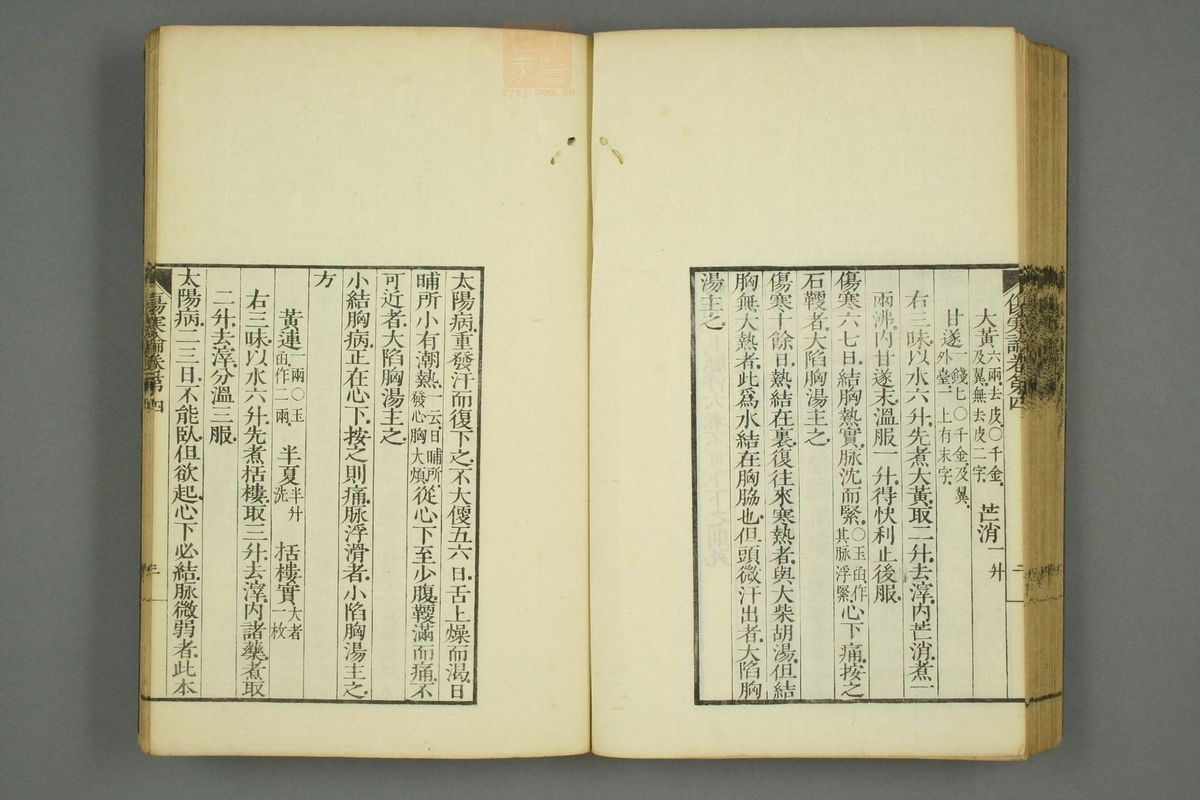 傷寒論卷第四
大黃六兩去皮○千金及翼無去皮二字 芒消一升
甘遂一錢匕○千金及翼外臺一上有末字
右三味以水六升先煮大黃取二升去滓内芒消煮一
兩沸内甘遂末溫服一升得快利止後服
傷寒六七日結胸熱實脉沈而緊○玉函作其脉浮緊心下痛按之
石鞕者大陷胸湯主之
傷寒十餘日熱結在裏復往來寒熱者與大柴胡湯但結
胸無大熱者此爲水結在胸脇也但頭微汗出者大陷胸
湯主之
太陽病重發汗而復下之不大便五六日舌上燥而渴日
晡所小有潮熱一云日晡所發心胸大煩從心下至少腹鞕滿而痛不
可近者大陷胸湯主之
小結胸病正在心下按之則痛脉浮滑者小陷胸湯主之
方
黃連一兩○玉函作二兩 半夏半升洗 括樓實大者一枚
右三味以水六升先煮括樓取三升去滓内諸藥煮取
二升去滓分溫三服
太陽病二三日不能臥但欲起心下必結脉微弱者此本
傷寒論卷第四
三
zysj.com.cn